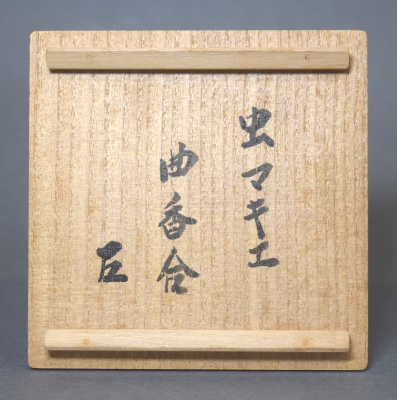 虫マキエ
曲香合